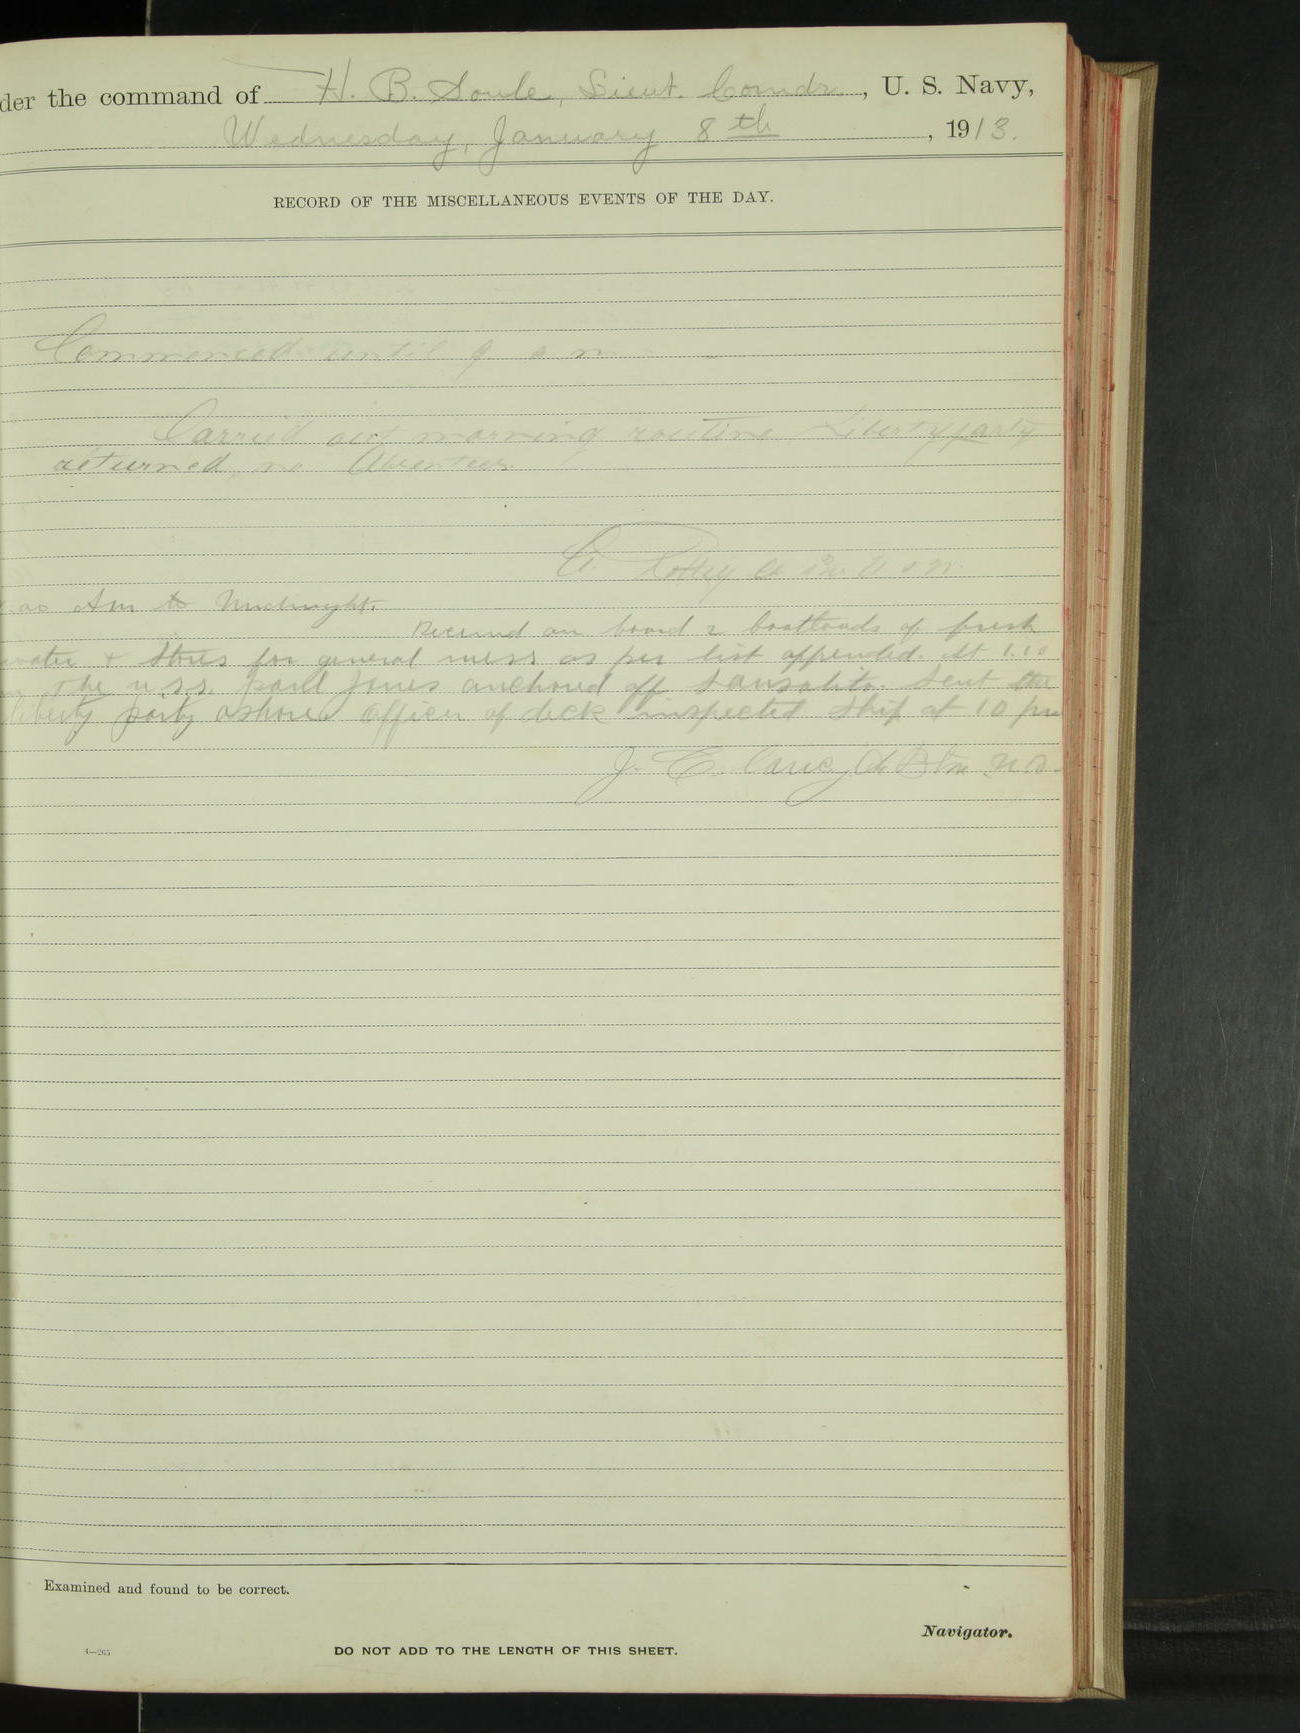 der the command of H. B. Soule, Lieut. Comdr., U. S. Navy,
Wednesday, January 8th, 1913.
RECORD OF THE MISCELLANEOUS EVENTS OF THE DAY.
Commenced until 9 a m
Carried out morning routine. Liberty party
returned, no Absentees.
Am to Midnight.
Received on board 2 boatloads of fresh
water & stores for general mess as per list appended. At 1.10
The U.S.S. Paul Jones anchored off Sausalito. Sent the
liberty party ashore. Officer of deck inspected ship at 10 pm
J. E. Carey
Examined and found to be correct.
Navigator.
4—265
DO NOT ADD TO THE LENGTH OF THIS SHEET.